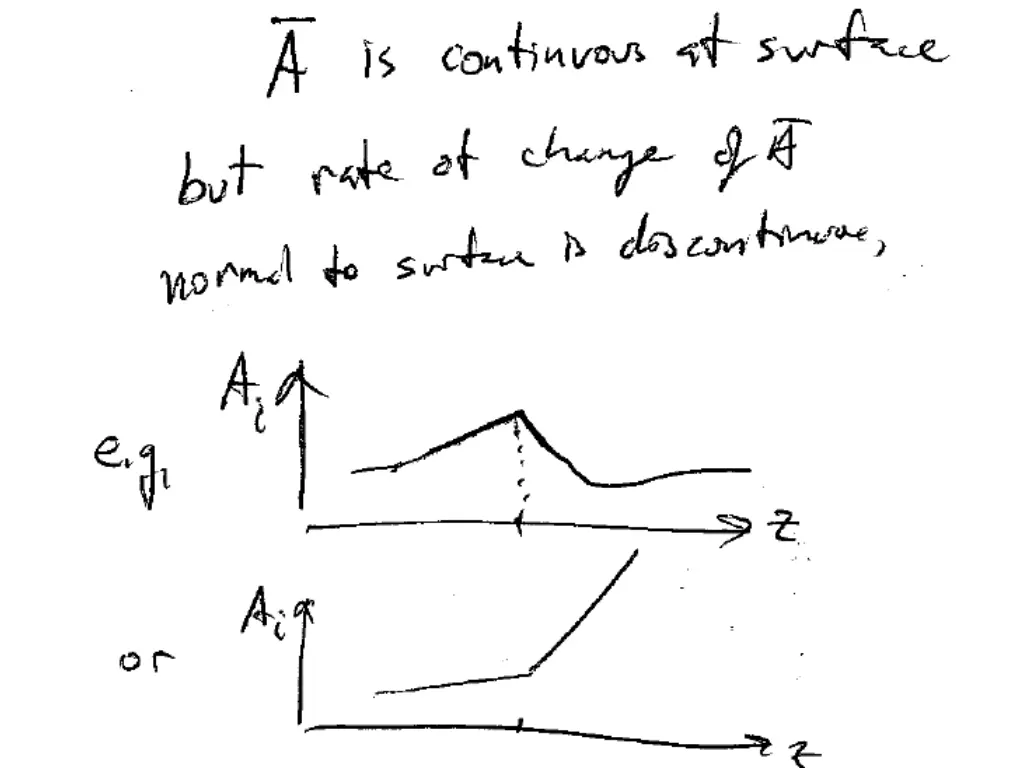 A̅ is continuous at surface
but rate of change of A̅
normal to surface is discontinuous,
Aᵢ
e.g.
z
Aᵢ
or
z